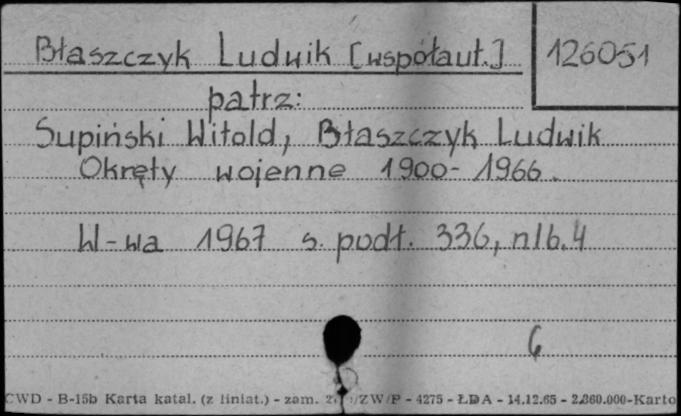 Błaszczyk Ludwik [współaut.] 126051
patrz:
Supiński Witold, Błaszczyk Ludwik
Okręty wojenne 1900-1966.
W-wa 1967 s. podł. 336, nlb. 4
6
CWD - B-15b Karta katal. (z liniat.) - zam. ZW/P - 4275 - ŁDA - 14.12.65 - 2.860.000-Karto